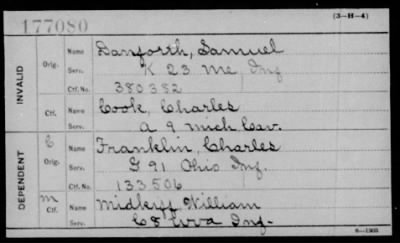 177080 (3-H-4)
INVALID
Orig. Name Danforth, Samuel
Serv. K 23 Me Inf
Ctf. No. 380382
Ctf. Name Cook, Charles
Serv. A 9 Mich Cav.
DEPENDENT
C Orig. Name Franklin, Charles
Serv. G 91 Ohio Inf.
Ctf. No. 133506
M Ctf. Name Midkiff William
Serv. C 8 WVa Inf.